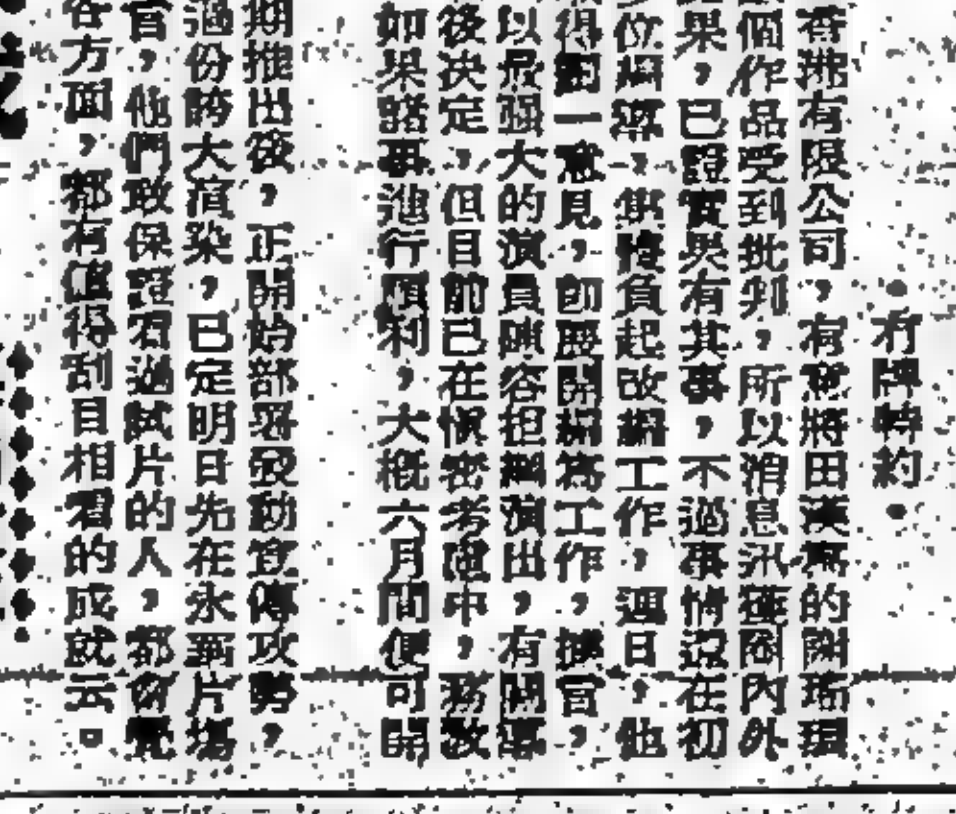 ·有牌特約·
有限公司,有意將田漢寫的謝瑤環
個作品受到批判,所以消息
果,已證實與有其事,不過事情還在初
位編導,其將負起改編工作,週日,他
得一意見,即要開編為工作,據官,
以最强大的演員陣容担綱演出,有關
後决定,但目前已在慎密考慮中,務
如果諸事進行順利,大概六月間便可開
期推出後,正開始部署發動宣傳攻勢,
過份誇大渲染,已定明日先在永華片場
官,他們敢保證看過試片的人,都
各方面,都有值得刮目相看的成就云。